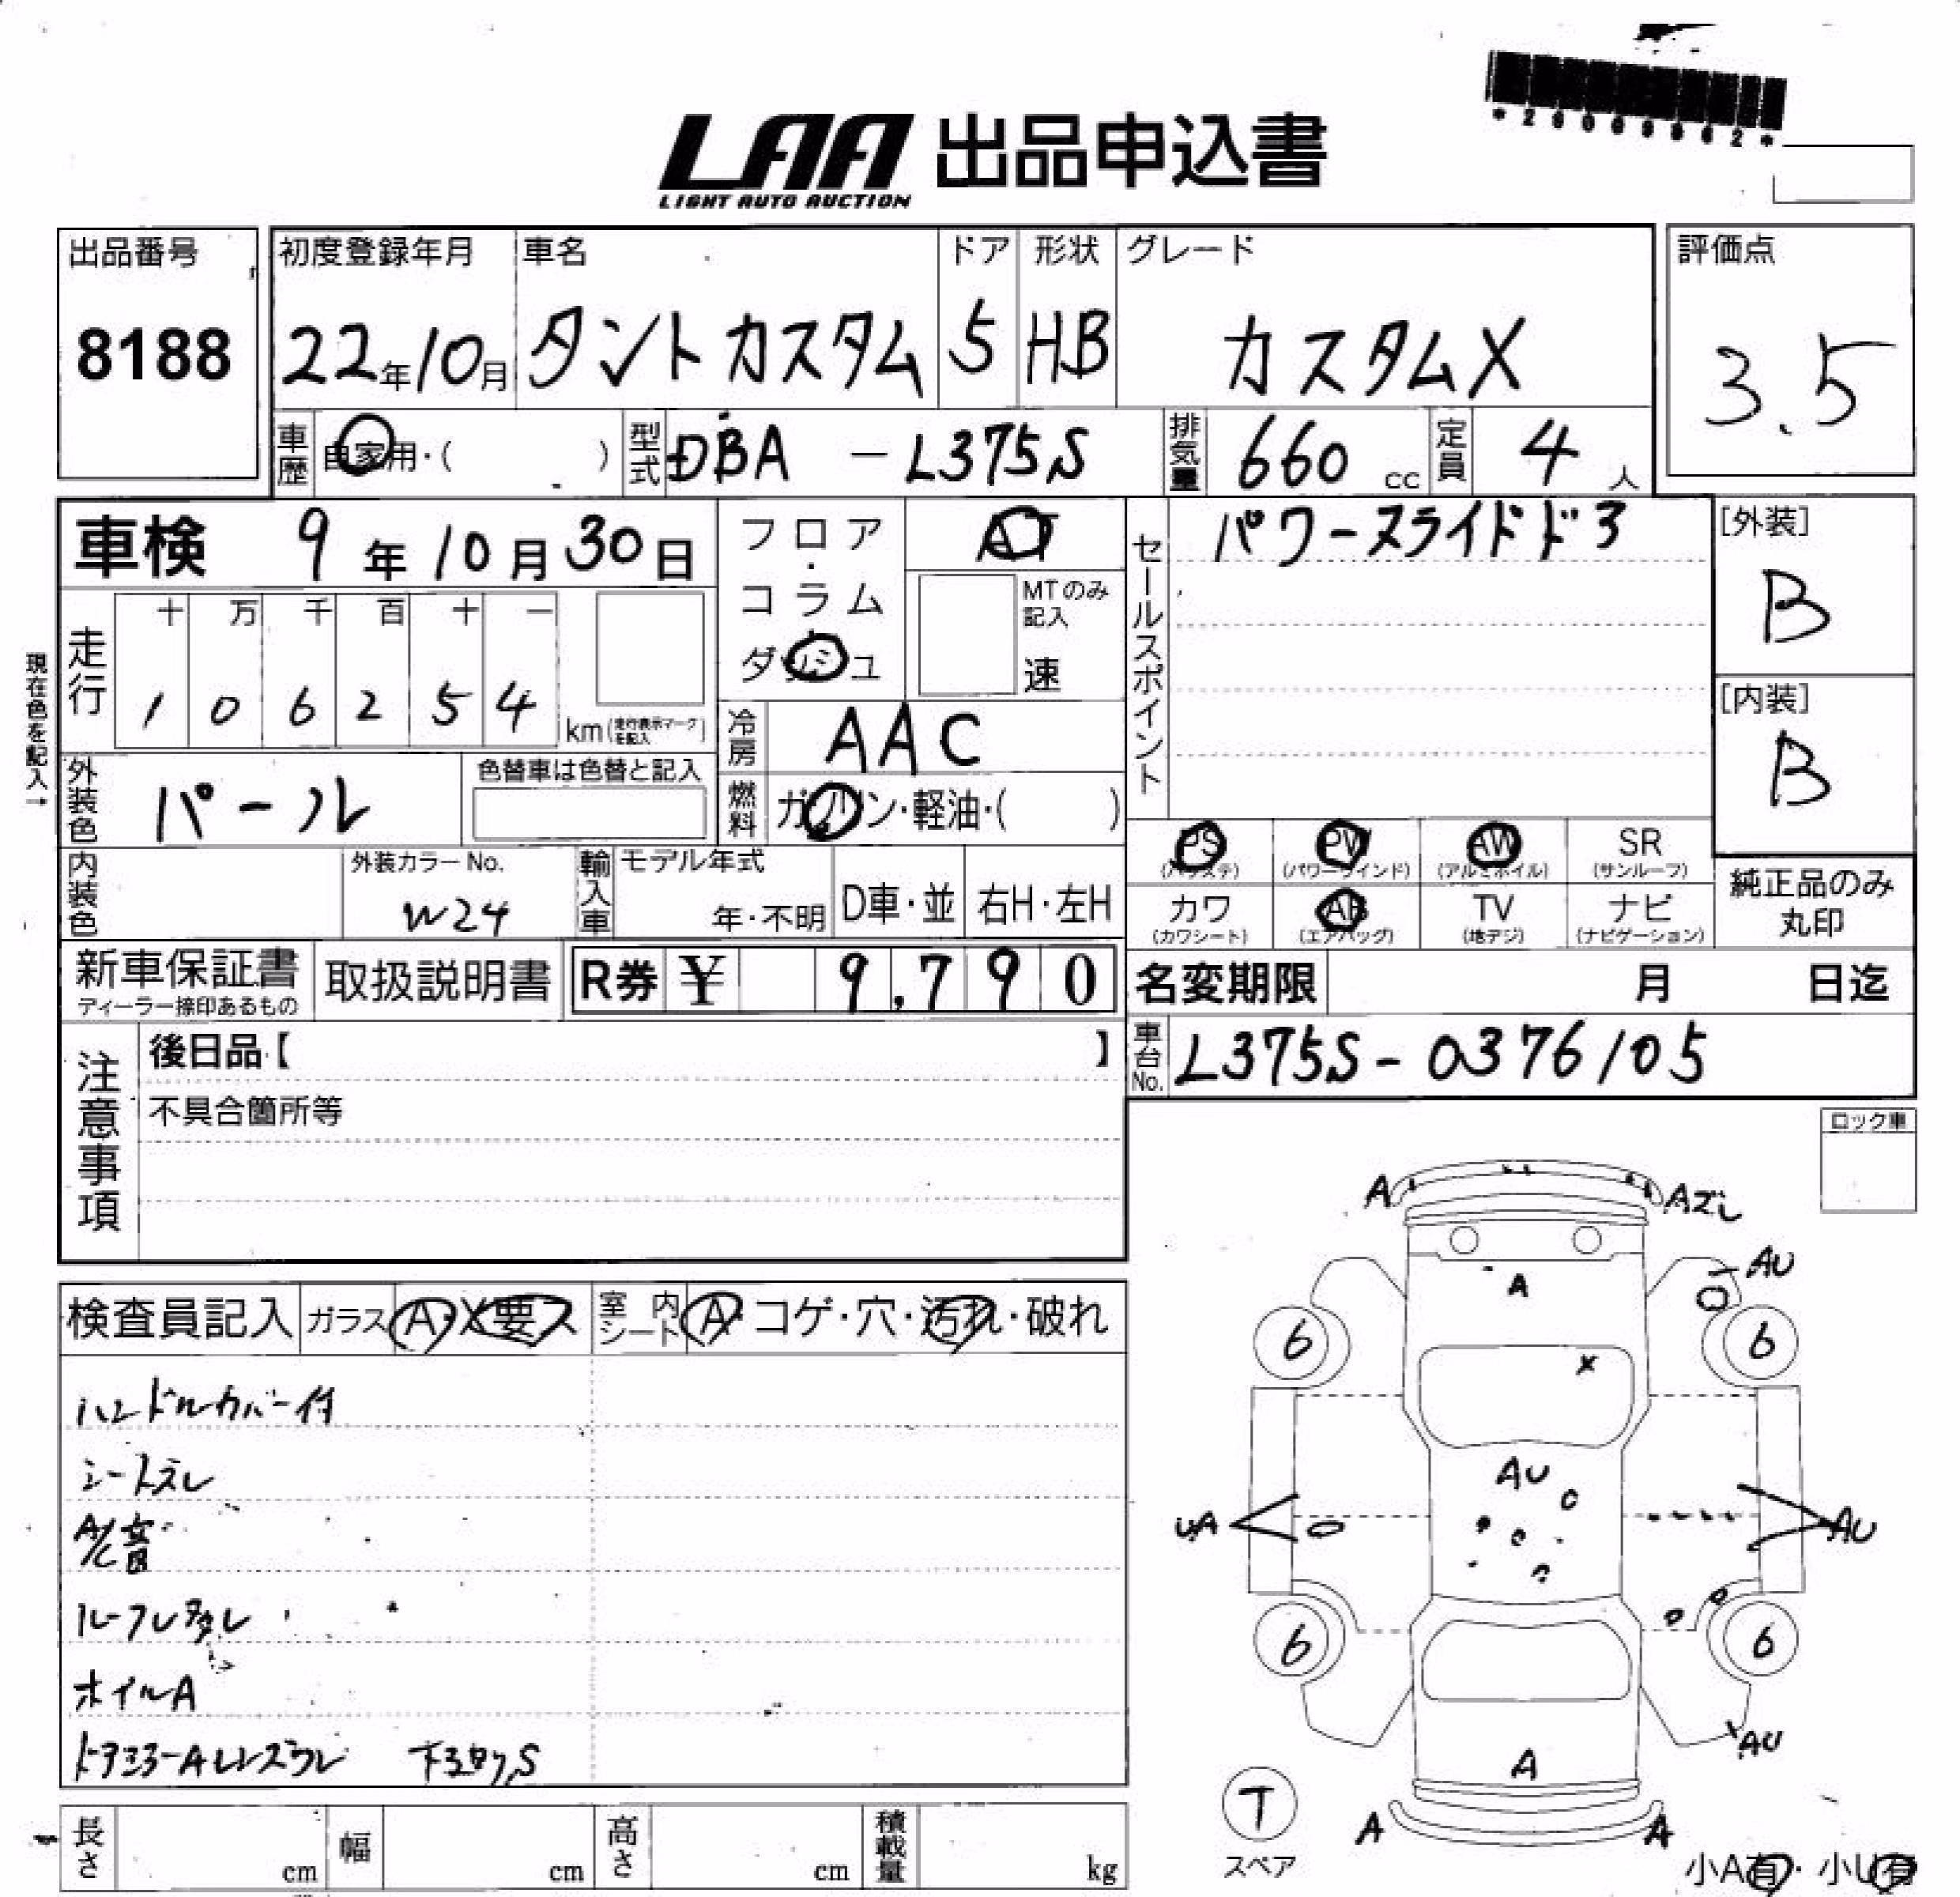 LAA 出品申込書
LIGHT AUTO AUCTION
出品番号
8188
初度登録年月
22年10月
車名
タントカスタム
ドア
5
形状
HB
グレード
カスタムX
評価点
3.5
車歴 自家用・( )
型式 DBA - L375S
排気量 660 cc
定員 4 人
車検 9年10月30日
フロア・コラム
ダッシュ
AT
MTのみ記入
速
セールスポイント
パワースライドド3
[外装]
B
[内装]
B
現在色を記入→
走行
十 万 千 百 十 一
1 0 6 2 5 4
km(走行表示マークを記入)
冷房 AAC
外装色 パール
色替車は色替と記入
燃料 ガソリン・軽油・( )
内装色
外装カラーNo.
W24
輸入車
モデル年式
年・不明
D車・並
右H・左H
PS (パワステ)
PW (パワーウインド)
AW (アルミホイル)
SR (サンルーフ)
カワ (カワシート)
AB (エアバッグ)
TV (地デジ)
ナビ (ナビゲーション)
純正品のみ
丸印
新車保証書
ディーラー捺印あるもの
取扱説明書
R券 ¥ 9,790
名変期限 月 日迄
注意事項
後日品【 】
不具合箇所等
車台No. L375S-0376105
ロック車
検査員記入
ガラス A・X要ス
室内シート A・コゲ・穴・汚れ・破れ
ハンドルカバー付
シートスレ
A/C音
ルーフレタレ
ホイルA
ドアミラーAレンズワレ 下回りS
A Aズレ
AU
A
6 6
X
AU
UA AU
6 6
AU
A
T
スペア
A A
小A有・小U有
長さ cm
幅 cm
高さ cm
積載量 kg